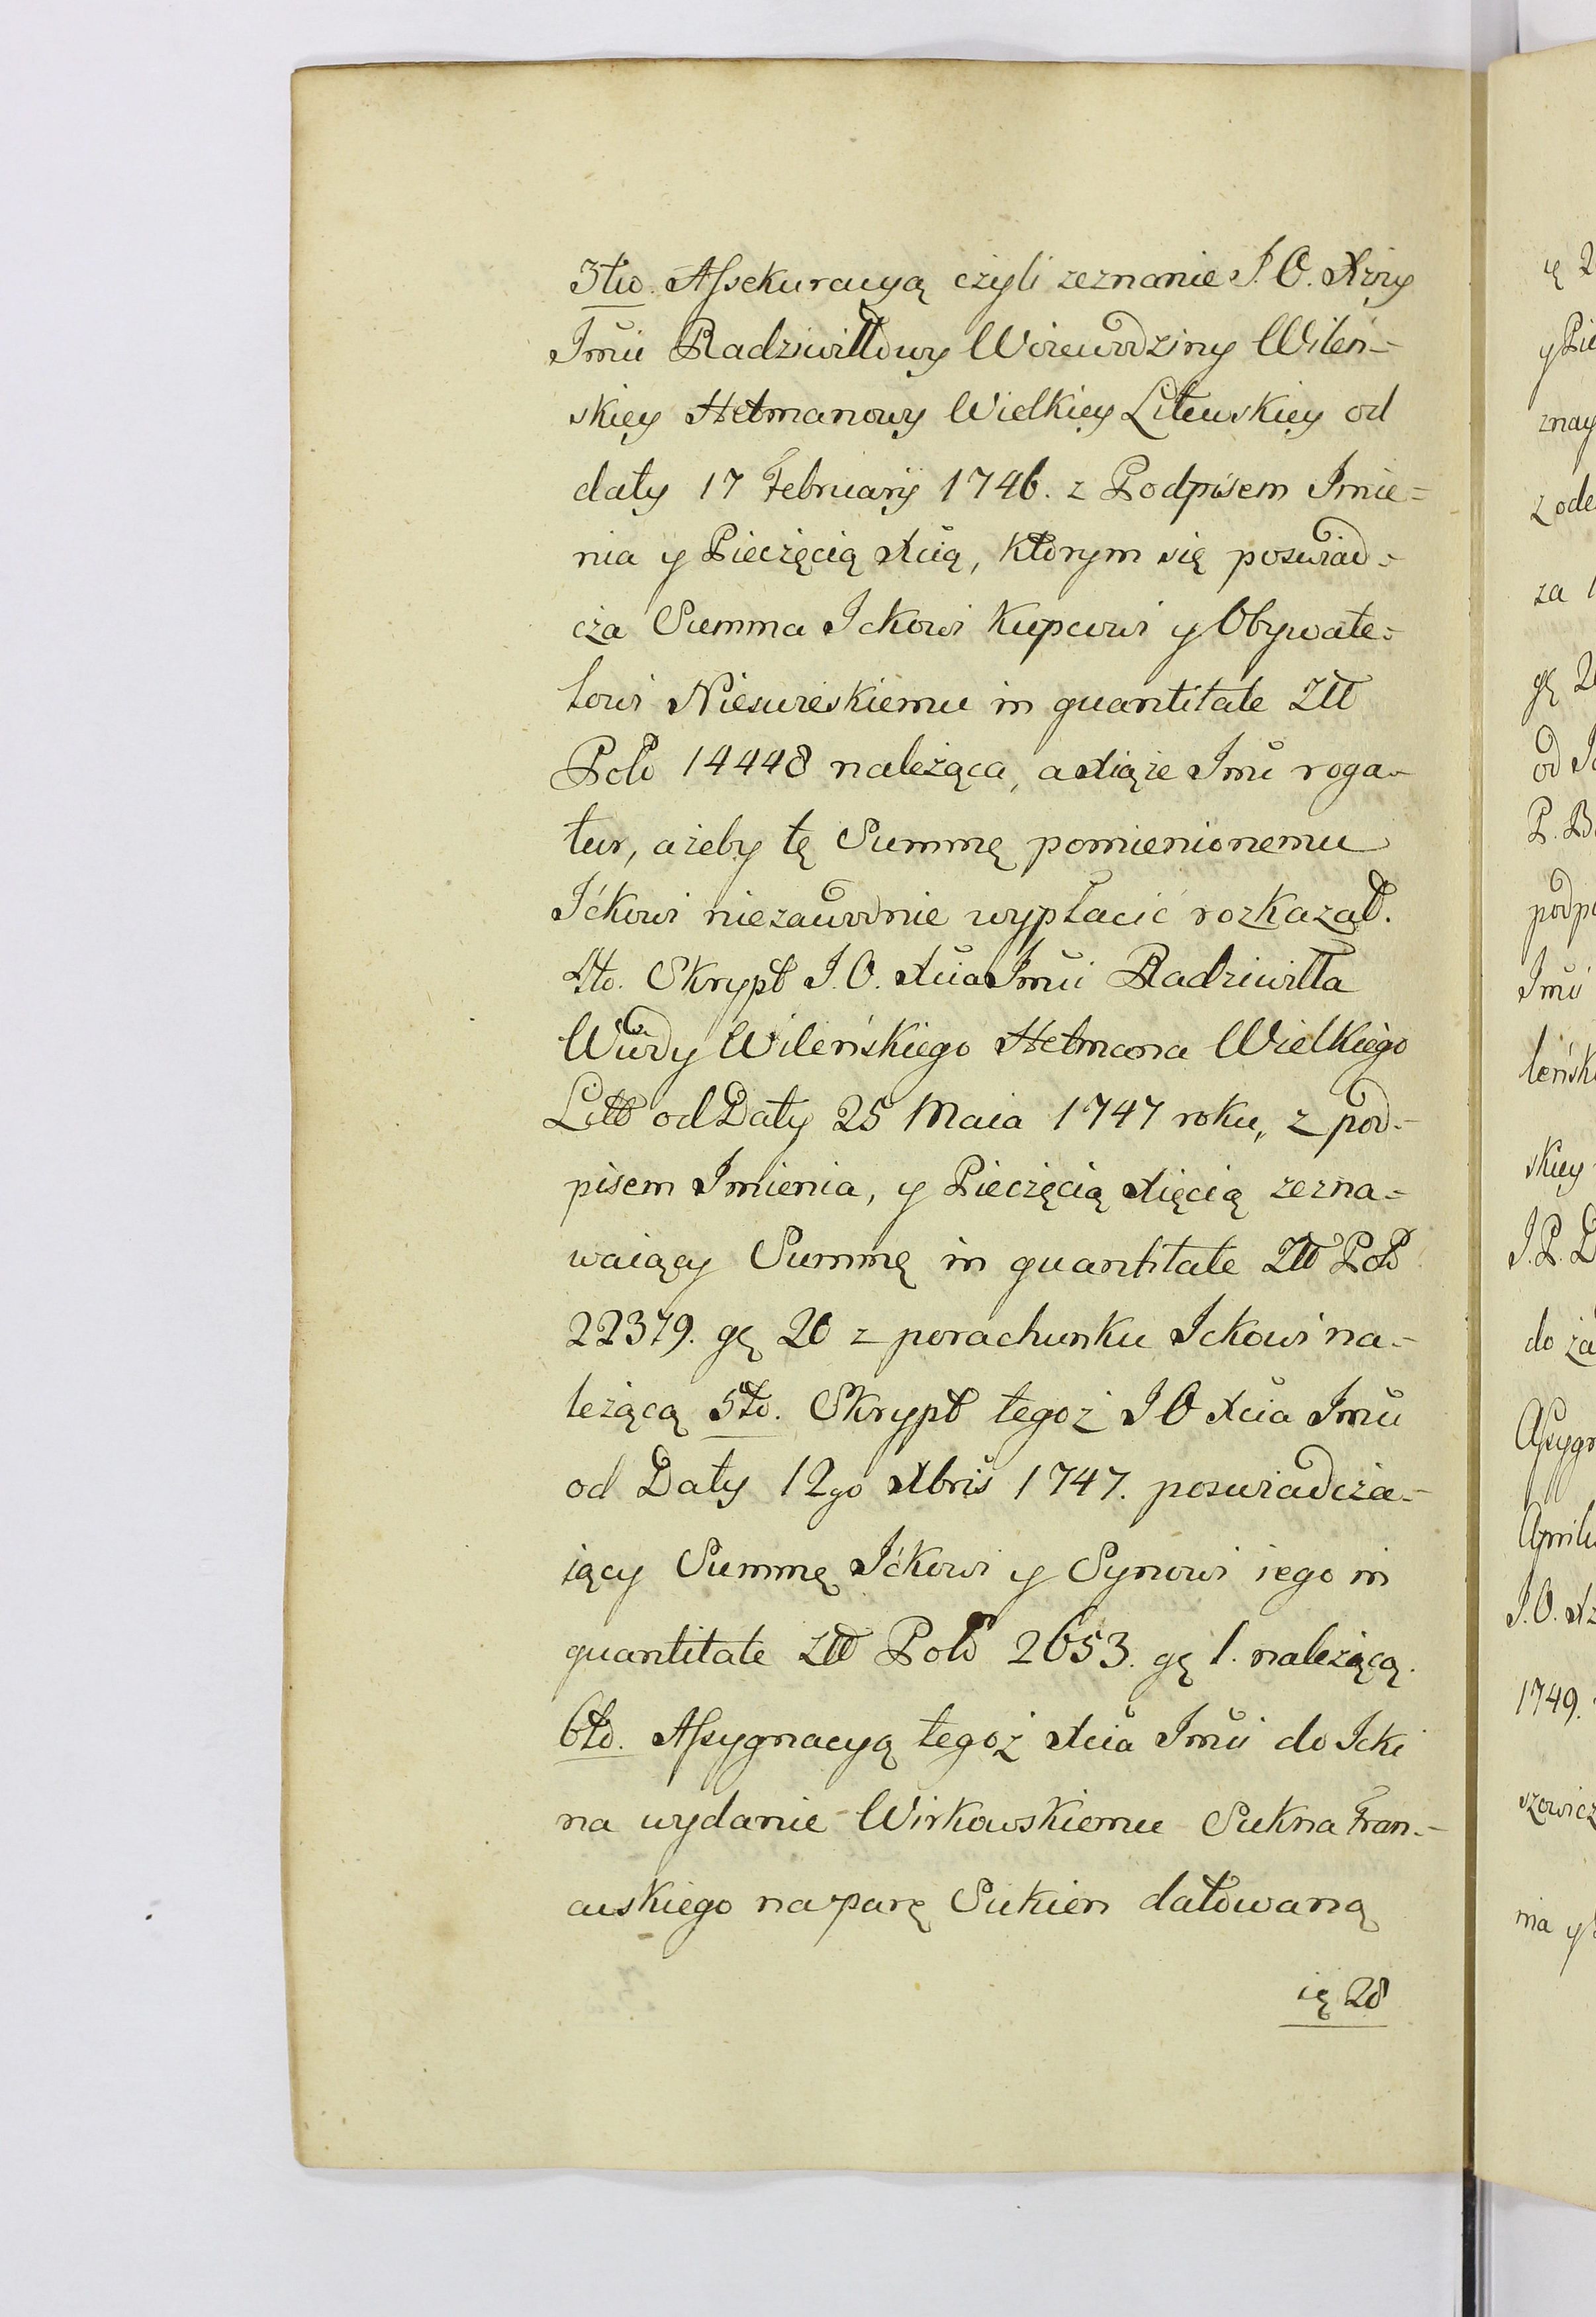 3tio. Assekuracyą czyli zeznanie J. O. Xzny
Jmći Radziwiłłowy Woiewodziny Wileń-
skięy Hetmanowy Wielkięy Litewskięy od
daty 17 Februarij 1746. z Podpisem Imie=
nia y Pieczęcią Xcią, ktorym się poswiad=
cza Summa Ickowi Kupcowi y Obywate=
lowi Nieswieskiemu in quantitate Złł
Pols 14448 należąca, a Xiąże Jmć roga-
tur, ażeby tę Summę pomienionemu
Ićkowi niezawodnie wypłacić rozkazał.
4to. Skrypt J. O. Xcia Jmći Radziwiłła
Wdy Wileńskiego Hetmana Wielkiego
Litt od Daty 25 Maia 1747 roku, z pod-
pisem Imienia, y Pieczęcią Xięcią zezna=
waiący Summę in quantitate Złł Pols
22379. gę 20 z porachunku Ickowi na-
leżącą 5to. Skrypt tegoż J O Xcia Jmći
od Daty 12go Xbris 1747. poswiadcza-
iący Summę Ićkowi y Synowi iego in
quantitate Złł Pols 2653. gę 1. należącą.
6to. Assygnacyą tegoż Xcia Jmći do Icki
na wydanie Wirkowskiemu Sukna Fran-
cuskiego na parę Sukien datowaną
ię 28
ę 2
y Pie
znay
z ode
za 1
gę 2
od
P. B
podp
Jmći
leńsk
skiey
J. P. D
do ża
Assygn
Aprili
J. O. X
1749.
szowicz
ma y